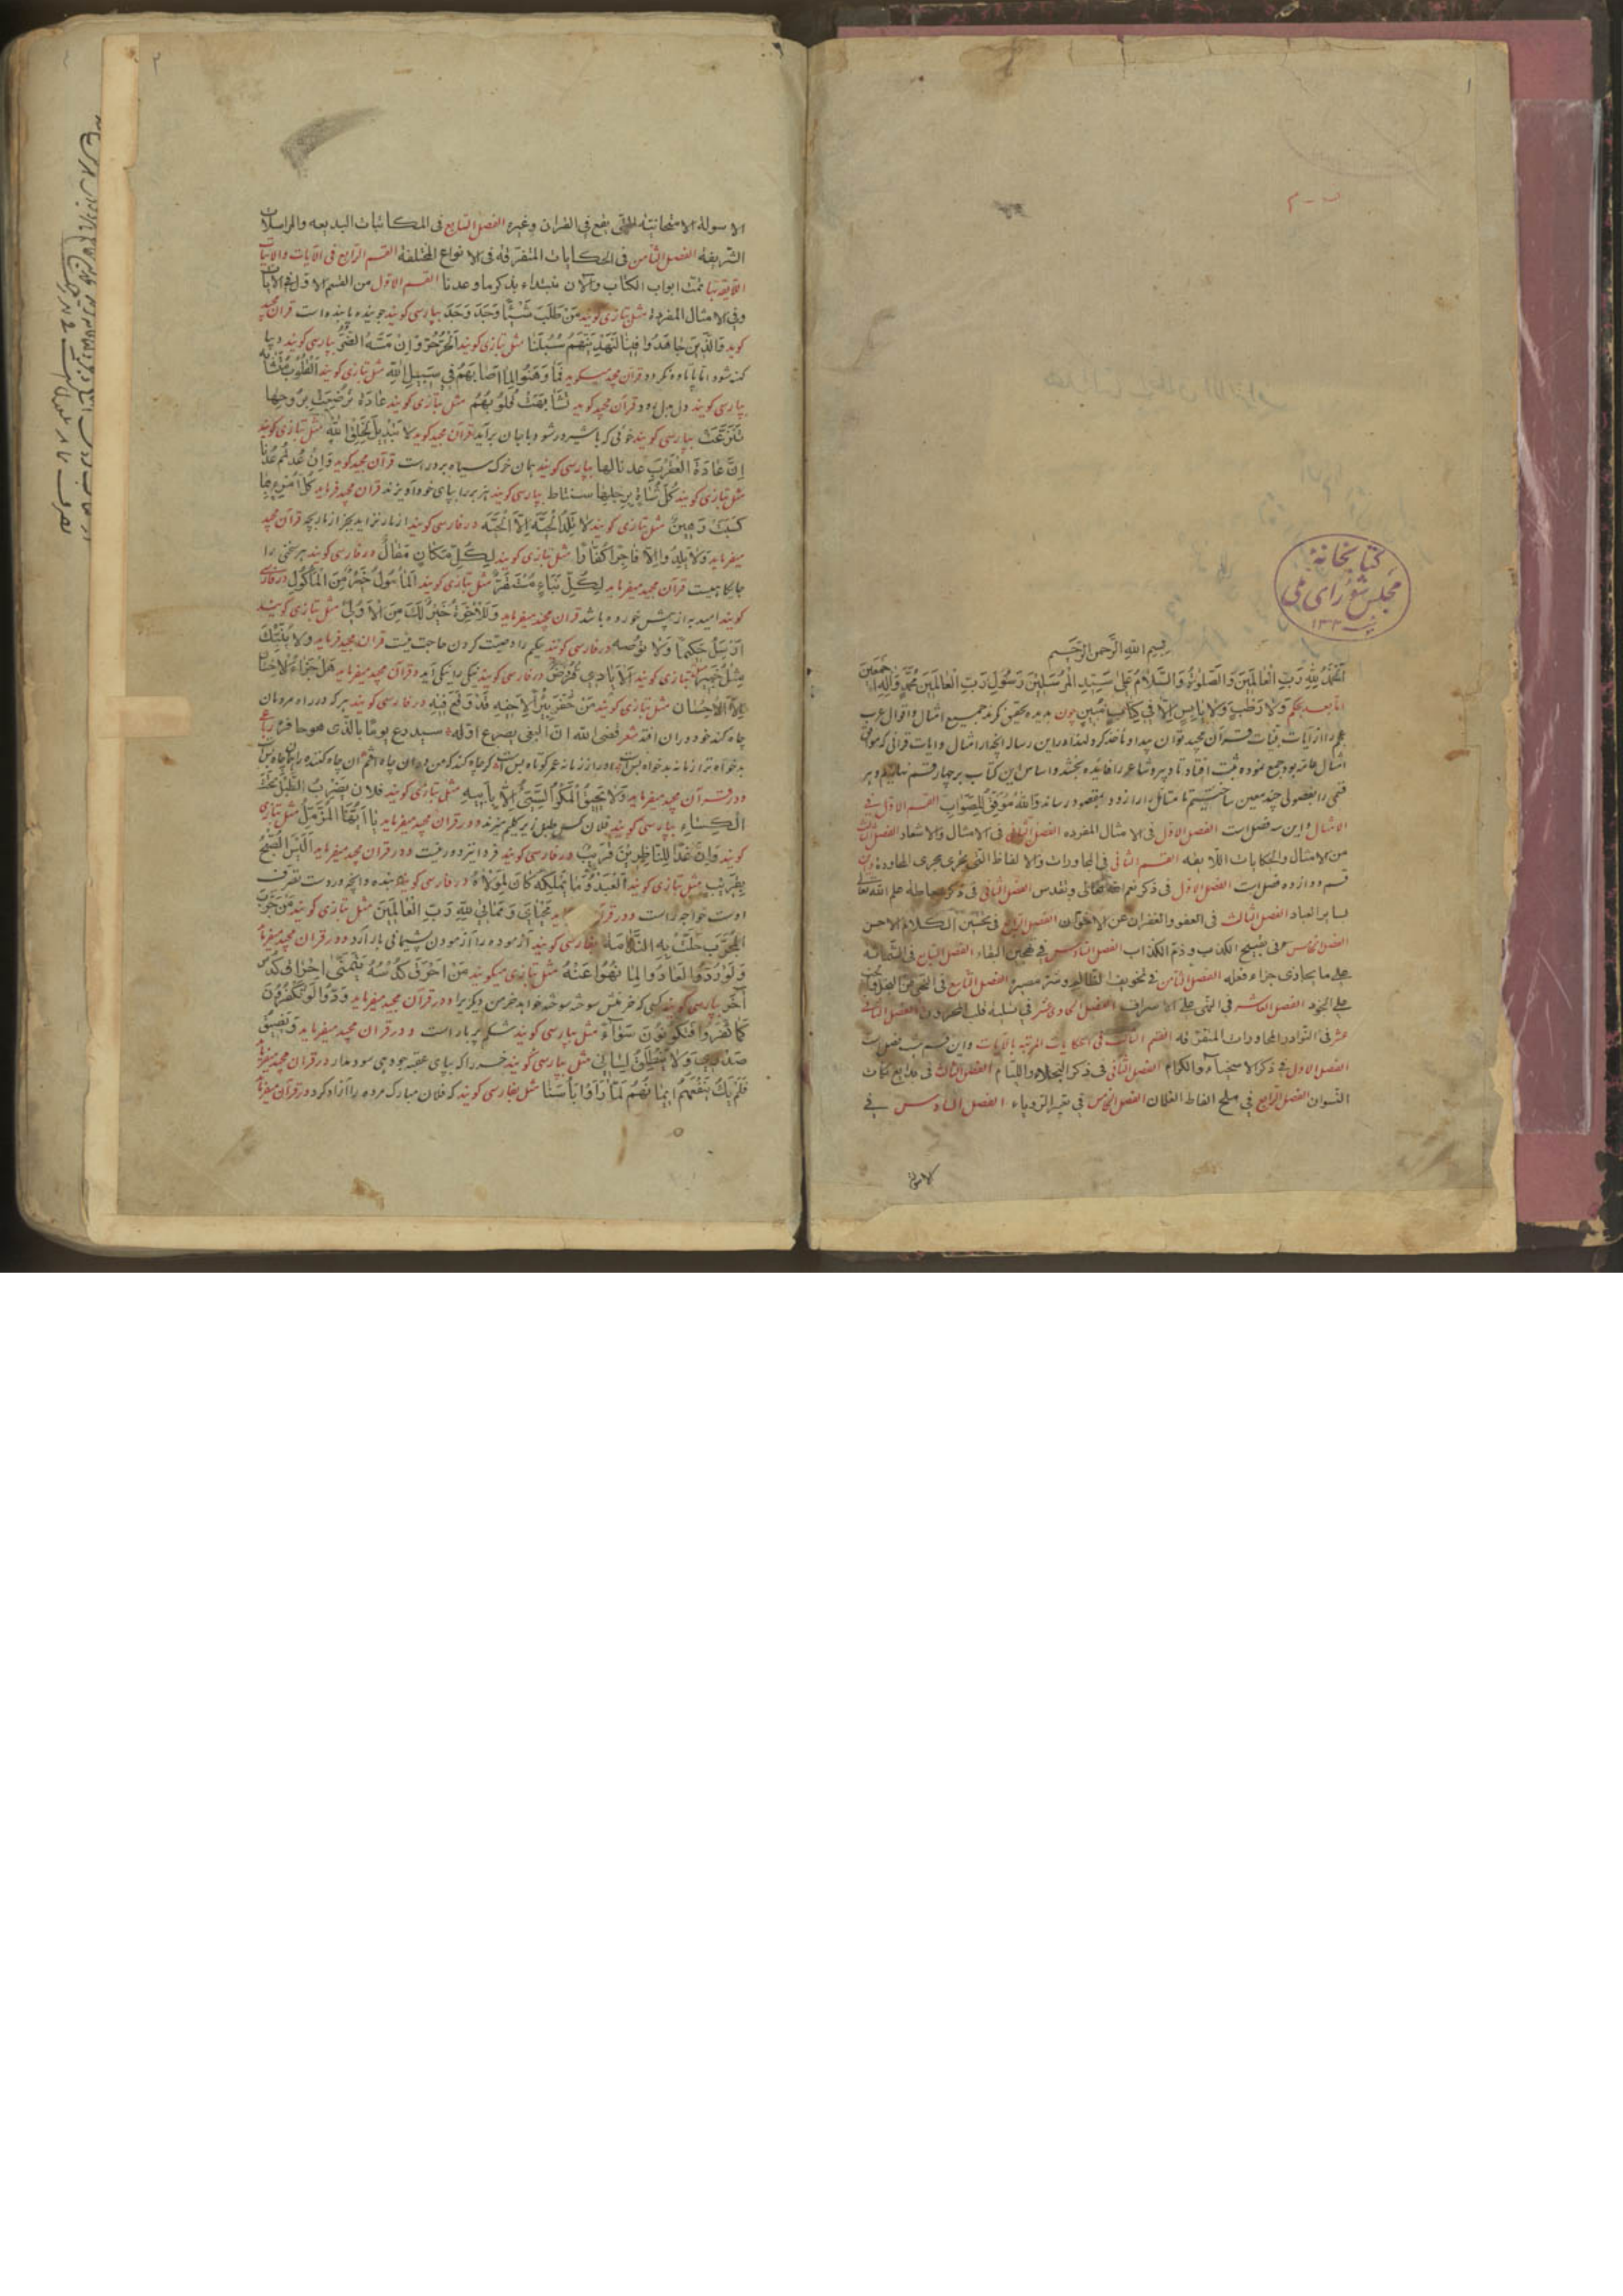 ۱
کتابخانهٔ
مجلس شورای ملی
۱۳۰۲
بسم الله الرحمن الرحیم
اَلْحَمْدُ لِلّٰهِ رَبِّ الْعالَمینَ وَالصَّلوٰةُ وَالسَّلامُ عَلیٰ سَیِّدِ الْمُرْسَلینَ رَسُولِ رَبِّ الْعالَمینَ مُحَمَّدٍ وَآلِهِ اَجْمَعینَ
اما بعد بحکم وَلا رَطْبٍ وَلا یابِسٍ اِلّا فی کِتابٍ مُبینٍ چون بدیده تحقیق نگرند جمیع امثال و اقوال عرب
و عجم را از آیات بینات قرآن مجید توان پیدا و مأخذ کرد لهذا در این رساله آنچه از امثال و آیات قرآنی که موافق
امثال سائره بود جمع نموده ثبت افتاد تا دبیر و شاعر را فایده بخشد و اساس این کتاب بر چهار قسم نهادیم و هر
قسمی را بفصولی چند معین ساختیم تا متأمل را زود بمقصود رساند وَاللهُ مُوَفِّقٌ لِلصَّواب القسم الاول فی
الامثال و این سه فصل است الفصل الاول فی الامثال المفرده الفصل الثانی فی الامثال والاشعار الفصل الثالث
من الامثال والحکایات اللایقه القسم الثانی فی المحاورات والالفاظ التی یجری مجری المحاورة و این
قسم دوازده فصل است الفصل الاول فی ذکر نعم الله تعالی و تقدس الفصل الثانی فی ذکر احاطة علم الله تعالی
بسایر العباد الفصل الثالث فی العفو والغفران عن الاخوان الفصل الرابع فی تحسین الکلام الاحسن
الفصل الخامس فی تقبیح الکذب و ذم الکذاب الفصل السادس فی تهجین اللقاء الفصل السابع فی الشماتة
علی ما یجازی جزاء فعله الفصل الثامن فی تخویف الظالم و سوء مصیره الفصل التاسع فی
علی الجود الفصل العاشر فی النهی علی الاسراف الفصل الحادی عشر فی تسلیة قلب المحزون الفصل الثانی
عشر فی النوادر المحاورات المتفرقه القسم الثالث فی الحکایات المرتبه بالآیات و این قسم هشت فصل است
الفصل الاول فی ذکر الاسخیاء والکرام الفصل الثانی فی ذکر البخلاء واللئام الفصل الثالث فی بدایع نکات
النسوان الفصل الرابع فی ملح الفاظ الغلمان الفصل الخامس فی تعبیر الرویاء الفصل السادس فی
الاسولة
۲
الاسولة الامتحانیة التی یقع فی القرآن وغیره الفصل السابع فی المکاتبات البدیعه والمراسلات
الشریفة الفصل الثامن فی الحکایات المتفرقه فی الانواع المختلفة القسم الرابع فی الآیات والابیات
اللایقه بها تمت ابواب الکتاب والآن نبتداء بذکر ما وعدنا القسم الاول من القسم الاول فی الآیات
وفی الامثال المفردة مثل بتازی گویند مَنْ طَلَبَ شَیْئاً وَجَدَّ وَجَدَ بپارسی گویند جوینده یابنده است قرآن مجید
گوید وَالَّذینَ جاهَدُوا فینا لَنَهْدِیَنَّهُمْ سُبُلَنا مثل بتازی گویند اَلْحُرُّ حُرٌّ وَاِنْ مَسَّهُ الضُّرُّ بپارسی گویند دیبا
کهنه شود اما پاتاوه نگردد قرآن مجید میگوید فَما وَهَنُوا لِما اَصابَهُمْ فی سَبیلِ اللهِ مثل بتازی گویند اَلْقُلُوبُ
بپارسی گویند دل بدل رود قرآن مجید گوید تَشابَهَتْ قُلُوبُهُمْ مثل بتازی گویند عادَةٌ تَرَضَّعَتْ بِرُوحِها
تَنَزَّعَتْ بپارسی گویند خوئی که با شیر در شود با جان برآید قرآن مجید گوید لا تَبْدیلَ لِخَلْقِ اللهِ مثل بتازی گویند
اِنْ عادَةُ الْعَقْرَبُ عُدْنا لَها بپارسی گویند همان خرک سیاه بر در است قرآن مجید گوید وَاِنْ عُدْتُمْ عُدْنا
مثل بتازی گویند کُلُّ شاةٍ بِرِجْلِها سَتُناطُ بپارسی گویند هر بز را بپای خود آویزند قرآن مجید فرماید کُلُّ امْرِئٍ بِما
کَسَبَ رَهینٌ مثل بتازی گویند لا تَلِدُ الْحَیَّةُ اِلَّا الْحَیَّةَ در فارسی گویند از مار نزاید بجز از مار بچه قرآن مجید
میفرماید وَلا یَلِدُوا اِلّا فاجِراً کَفّاراً مثل بتازی گویند لِکُلِّ مَکانٍ مَقالٌ در فارسی گویند هر سخنی را
جایگاهیست قرآن مجید میفرماید لِکُلِّ نَبَاءٍ مُسْتَقَرٌّ مثل بتازی گویند اَلْمَأْمُولُ خَیْرٌ مِنَ الْمَأْکُولِ در فارسی
گویند امید به از پیش خورده باشد قرآن مجید میفرماید وَلَلْاٰخِرَةُ خَیْرٌ لَکَ مِنَ الْاُولیٰ مثل بتازی گویند
اَرْسِلْ حَکیماً وَلا تُوصِه در فارسی گویند حکیم را وصیت کردن حاجت نیست قرآن مجید فرماید وَلا یُنَبِّئُکَ
مِثْلُ خَبیرٍ مثل بتازی گویند اَلْاَیادی قُرُوضٌ در فارسی گویند نیکی را نیکی آید و قرآن مجید میفرماید هَلْ جَزاءُ الْاِحْسانِ
اِلَّا الْاِحْسان مثل بتازی گویند مَنْ حَفَرَ بِئْراً لِاَخیهِ فَقَدْ وَقَعَ فیهِ در فارسی گویند هر که در راه مردمان
چاه کند خود در آن افتد شعر قضی الله ان البغی یصرع اهله
و در قرآن مجید میفرماید وَلا یَحیقُ الْمَکْرُ السَّیِّئُ اِلّا بِاَهْلِهِ مثل بتازی گویند فلان یَضْرِبُ الطَّبْلَ تَحْتَ
الْکِساءِ بپارسی گویند فلان کس طبل زیر گلیم میزند و در قرآن مجید میفرماید یا اَیُّهَا الْمُزَّمِّلُ مثل بتازی
گویند وَاِنَّ غَداً لِلنّاظِرینَ قَریبٌ در فارسی گویند فردا نیز دور نیست و در قرآن مجید میفرماید اَلَیْسَ الصُّبْحُ
بِقَریبٍ مثل بتازی گویند اَلْعَبْدُ وَما یَمْلِکُهُ کانَ لِمَوْلاهُ در فارسی گویند بنده و آنچه در دست تصرف
اوست خواجه راست و در قرآن مَحْیایَ وَمَماتی لِلّهِ رَبِّ الْعالَمینَ مثل بتازی گویند مَنْ جَرَّبَ
الْمُجَرَّبَ حَلَّتْ بِهِ النَّدامَةُ بفارسی گویند آزموده را آزمودن پشیمانی بار آرد و در قرآن مجید میفرماید
وَلَوْ رُدُّوا لَعادُوا لِما نُهُوا عَنْهُ مثل بتازی میگویند مَنْ اَحْرَقَ کُدْسُهُ یَتَمَنّیٰ اِحْراقَ کُدْسِ
آخَرَ بپارسی گویند کسی که خرمنش سوخته سوخته خواهد خرمن دیگر را و در قرآن مجید میفرماید وَدُّوا لَوْ تَکْفُرُونَ
کَما کَفَرُوا فَتَکُونُونَ سَواءً مثل بپارسی گویند شکم پر بار است و در قرآن مجید میفرماید وَیَضیقُ
صَدْری وَلا یَنْطَلِقُ لِسانی مثل بپارسی گویند خر را که بپای عقبه جو دهی سود ندارد در قرآن مجید میفرماید
فَلَمْ یَکُ یَنْفَعُهُمْ ایمانُهُمْ لَمّا رَاَوْا بَأْسَنا مثل بفارسی گویند که فلان مبارک مرده را آزاد کرد در قرآن میفرماید